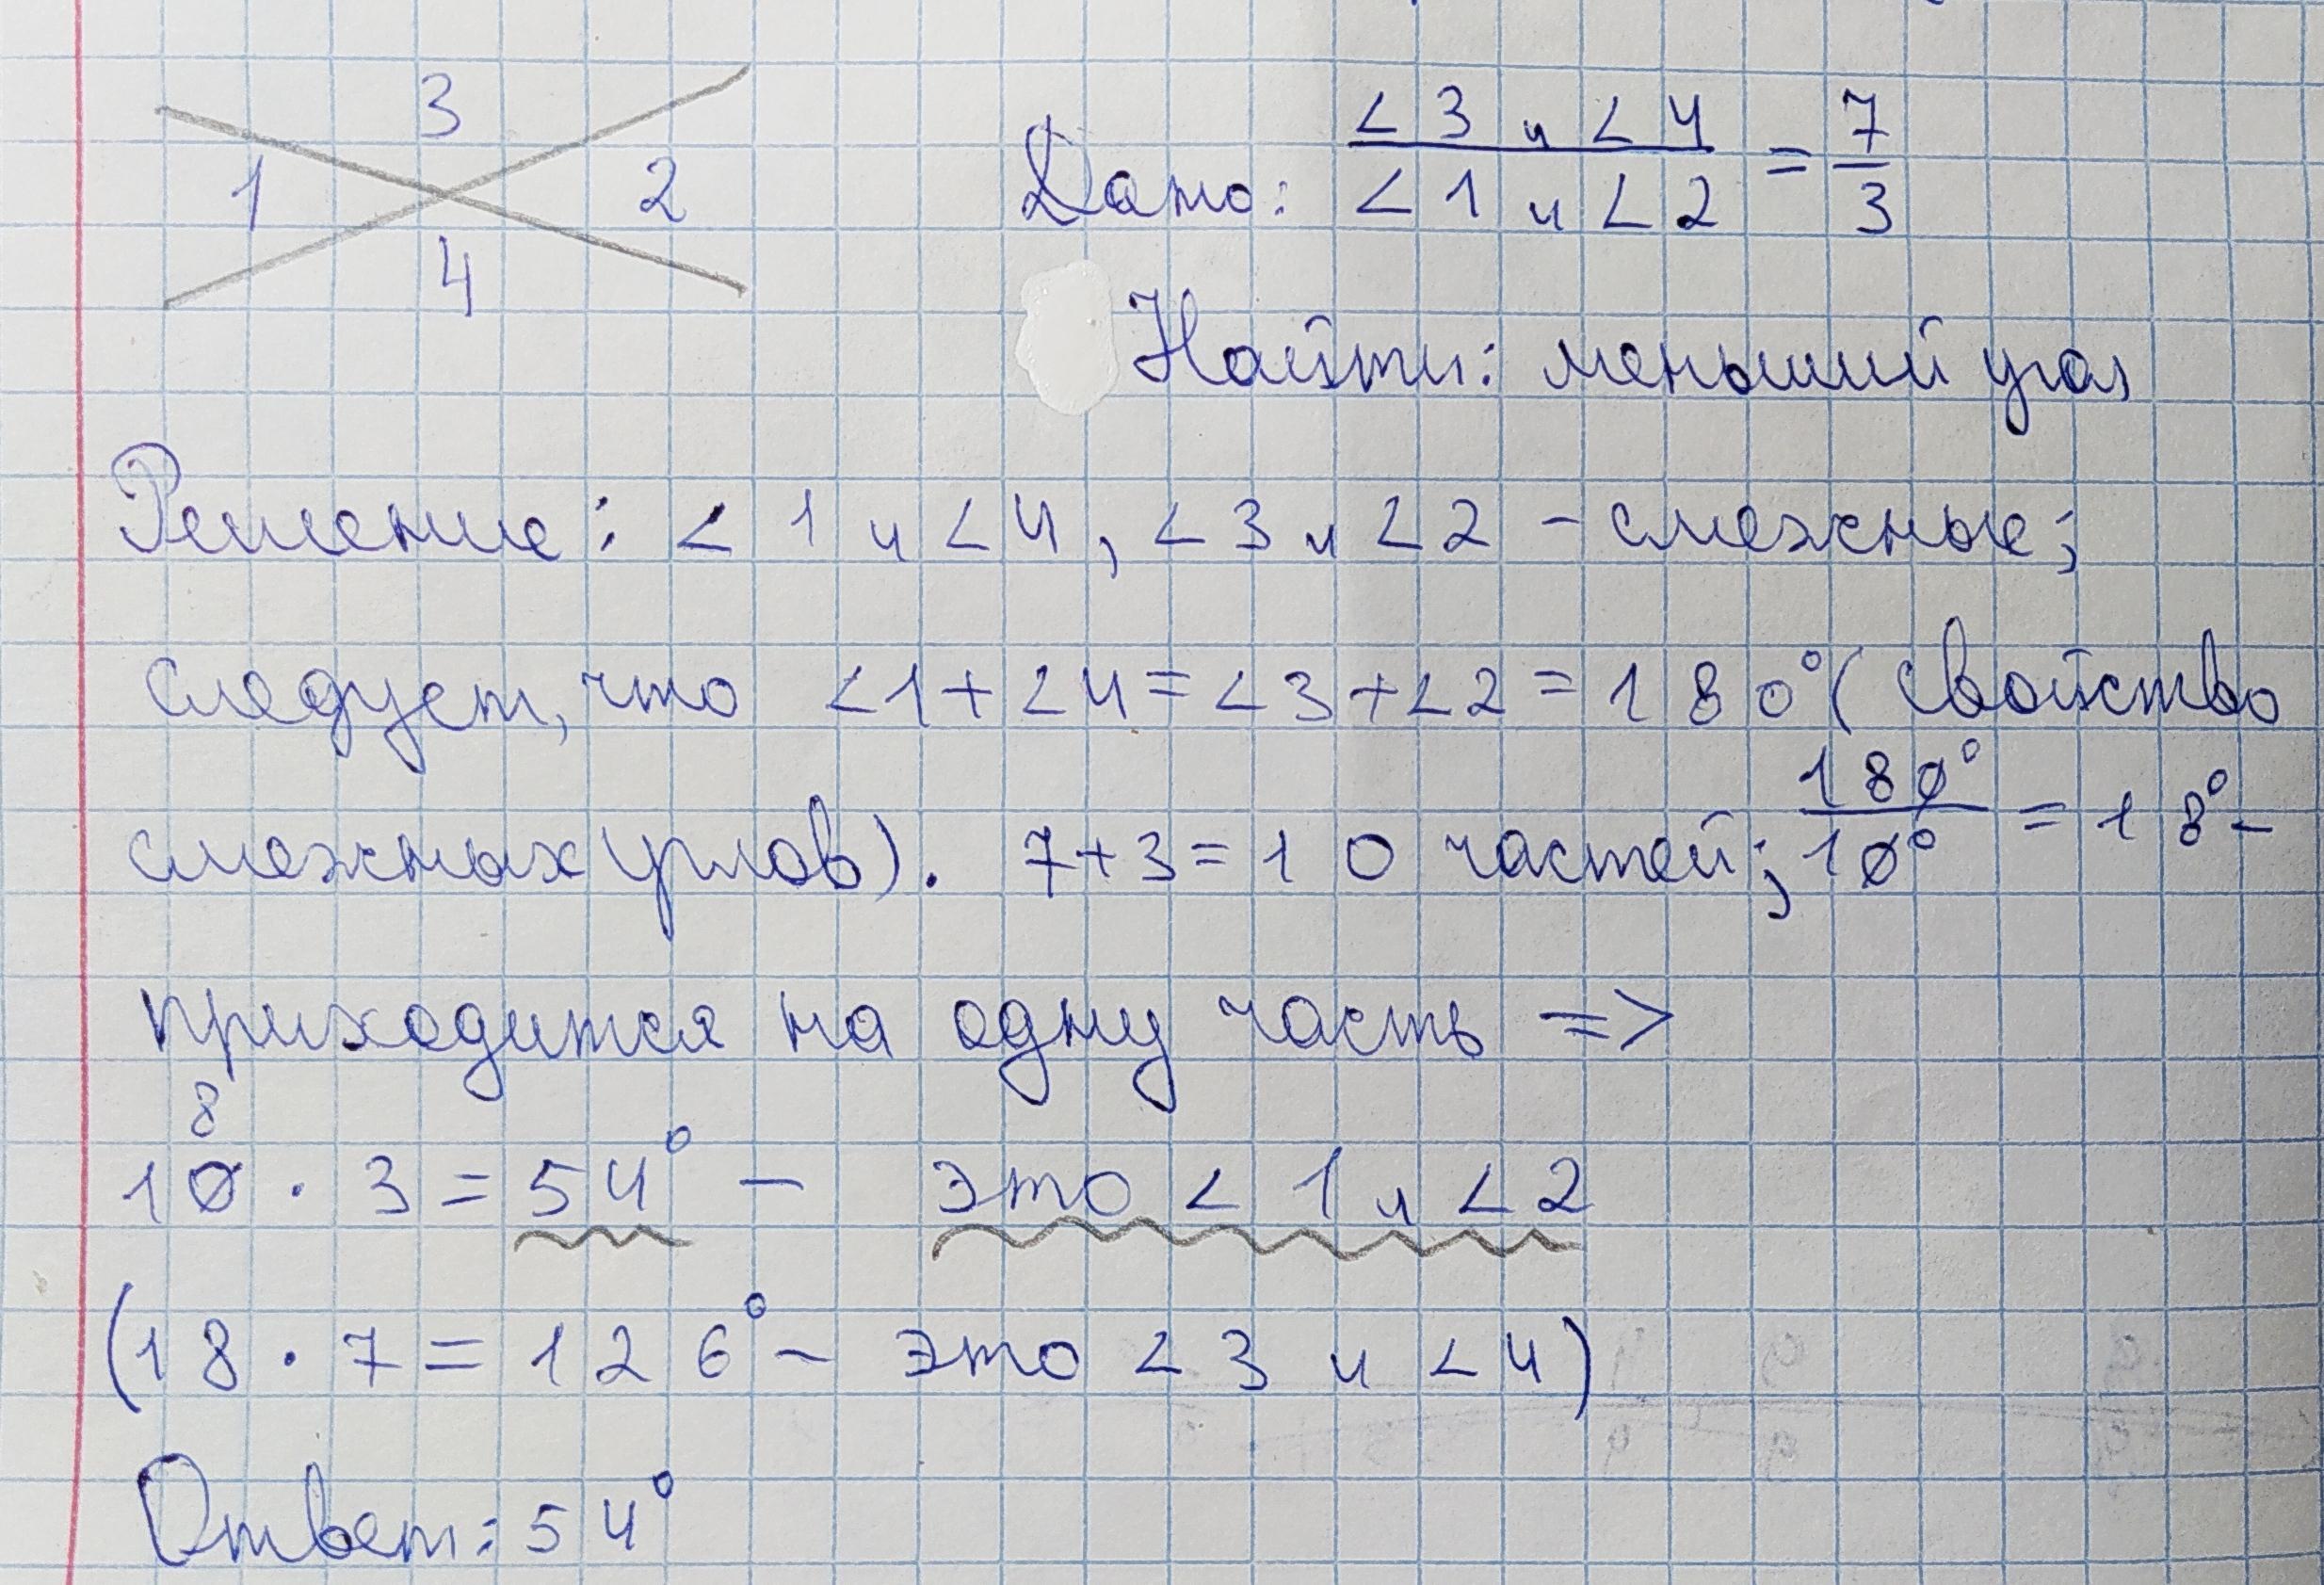 3
1 2
4
Дано: <3 и <4 / <1 и <2 = 7/3
Найти: меньший угол
Решение: <1 и <4, <3 и <2 - смежные;
следует, что <1+<4=<3+<2=180° (свойство
смежных углов). 7+3=10 частей; 180°/10° = 18° -
приходится на одну часть =>
8
10 · 3 = 54° - это <1 и <2
(18 · 7 = 126° - это <3 и <4)
Ответ: 54°